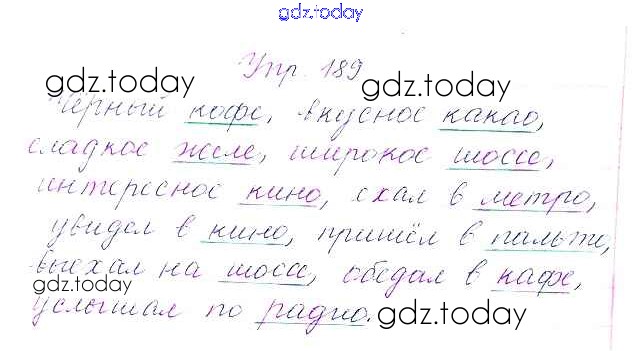 gdz.today
Упр. 189
gdz.today gdz.today
Чёрный кофе, вкусное какао,
сладкое желе, широкое шоссе,
интересное кино, ехал в метро,
увидел в кино, пришёл в пальто,
выехал на шоссе, обедал в кафе,
gdz.today
услышал по радио.
gdz.today